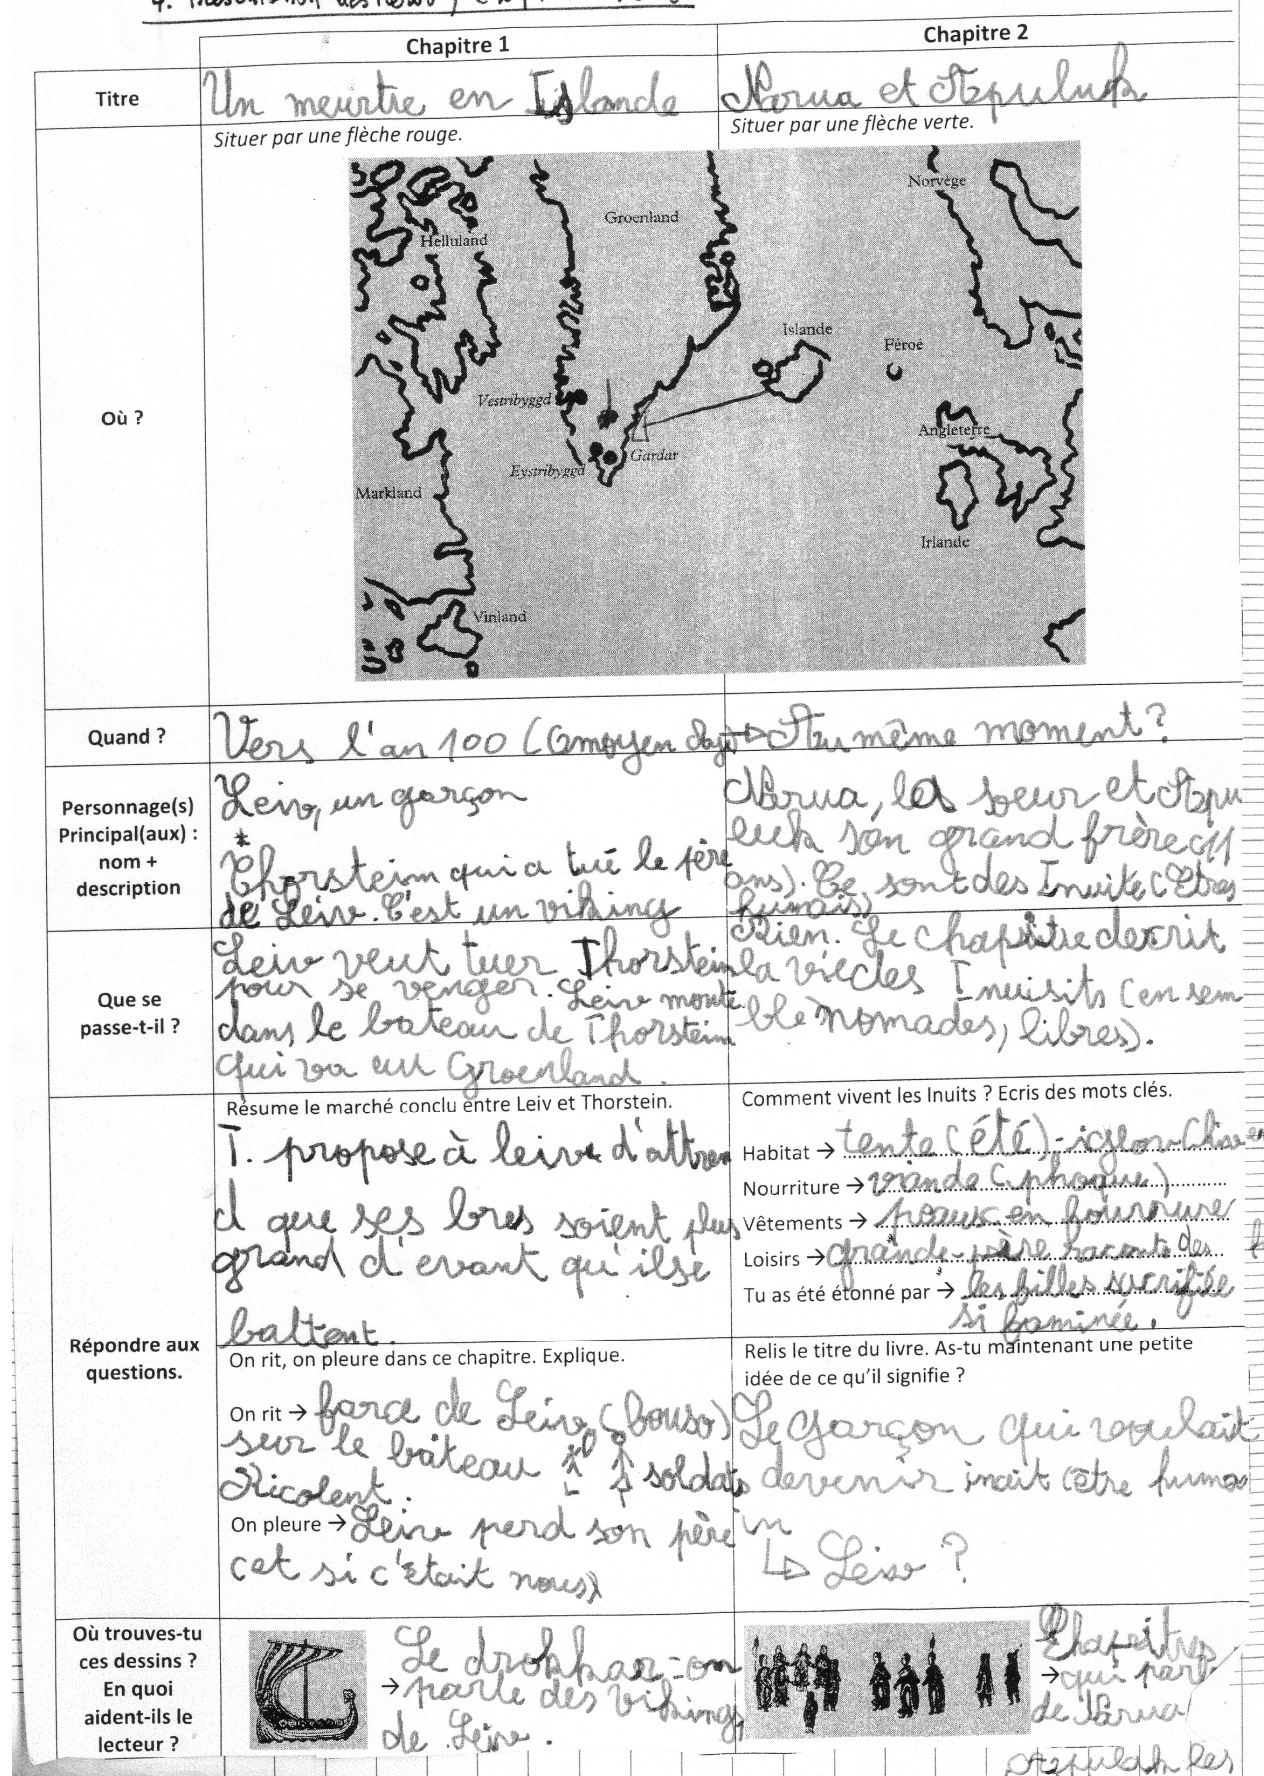 Chapitre 1
Chapitre 2
Titre
Un meurtre en Islande
Narua et Apuluk
Où ?
Situer par une flèche rouge.
Situer par une flèche verte.
Norvège
Groenland
Helluland
Islande
Féroé
Vestribyggd
Angleterre
Gardar
Eystribyggd
Markland
Irlande
Vinland
Quand ?
Vers l'an 100 (
→ Au même moment ?
Personnage(s)
Principal(aux) :
nom +
description
Leiv, un garçon
* Thorstein qui a tué le père
de Leiv. C'est un viking
Narua, la soeur et Apu
luck son grand frère (11
ans). Ce sont des Inuite (Etres
humais)
Que se
passe-t-il ?
Leiv veut tuer Thorstein
pour se venger. Leiv monte
dans le bateau de Thorstein
qui va au Groenland.
Rien. Le chapitre decrit
la vie des Inuisits (en sem
ble nomades, libres).
Répondre aux
questions.
Résume le marché conclu entre Leiv et Thorstein.
T. propose à leiv d'attren
d que ses bres soient plus
grand d'evant qu'ilse
battent.
Comment vivent les Inuits ? Ecris des mots clés.
Habitat → tente (été) -
Nourriture → viande (phoque)
Vêtements → peaux en fourrure
Loisirs → grande-père raconte des
Tu as été étonné par → les filles sacrifiée
si faminée.
On rit, on pleure dans ce chapitre. Explique.
On rit → farce de Leiv
sur le bâteau soldats
Ricolent.
On pleure → Leiv perd son père
cet si c'était nous)
Relis le titre du livre. As-tu maintenant une petite
idée de ce qu'il signifie ?
Le garçon qui voulait
devenir inuit (être huma
in
↳ Leiv ?
Où trouves-tu
ces dessins ?
En quoi
aident-ils le
lecteur ?
→ Le drakkar = on
parle des vikings,
de Leiv.
→ Chapitres
qui parl
de Narua
Apuluk les